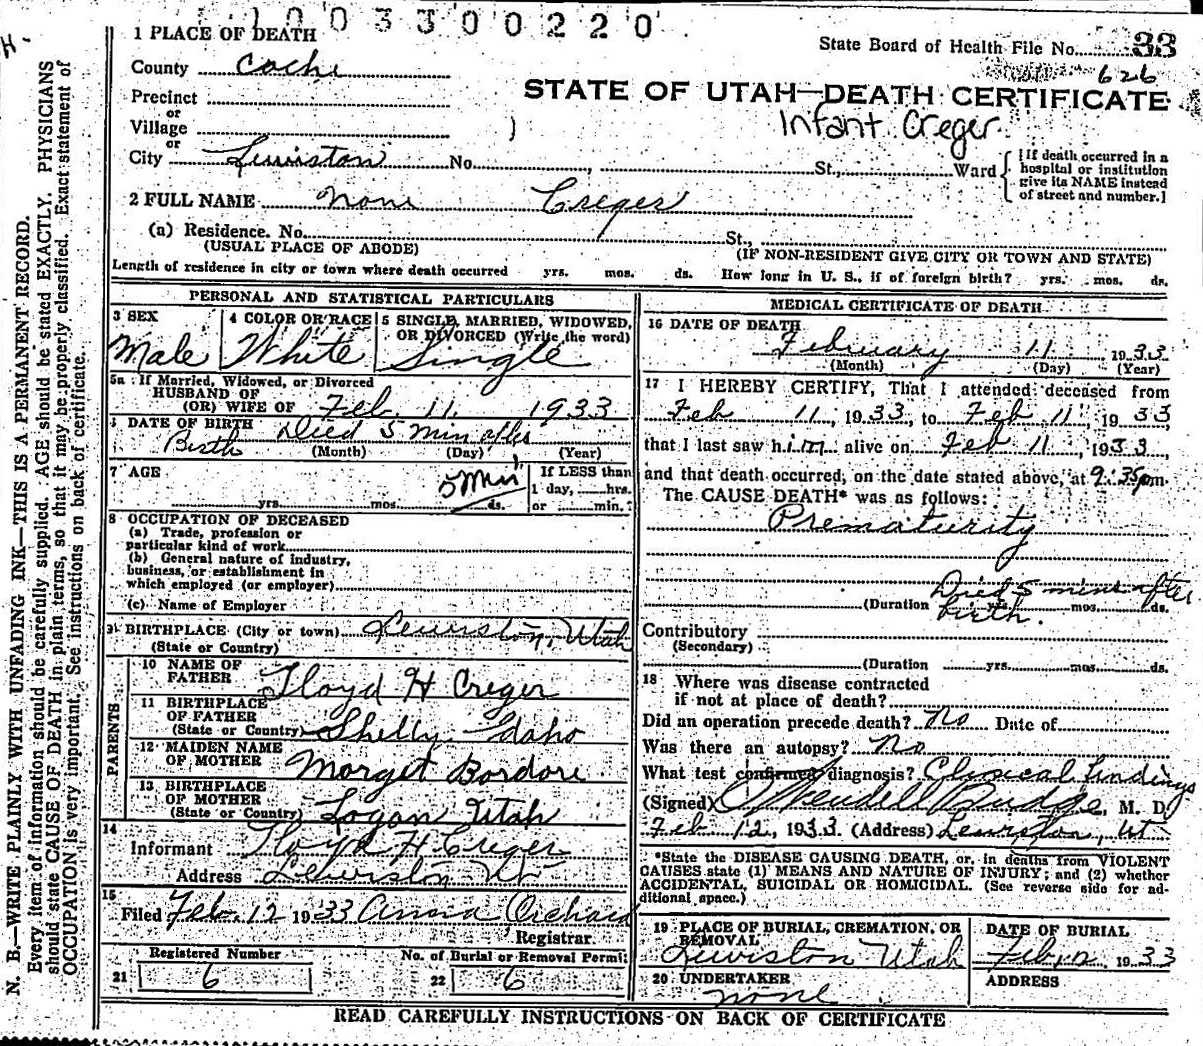 1 0 0 3 3 0 0 2 2 0
1 PLACE OF DEATH
State Board of Health File No. 33
County Cache
626
Precinct
STATE OF UTAH—DEATH CERTIFICATE
or
Village
Infant Creger
or
City Lewiston No. St., Ward
[If death occurred in a
hospital or institution
give its NAME instead
of street and number.]
2 FULL NAME None Creger
(a) Residence. No. St.,
(USUAL PLACE OF ABODE) (IF NON-RESIDENT GIVE CITY OR TOWN AND STATE)
Length of residence in city or town where death occurred yrs. mos. ds. How long in U. S., if of foreign birth? yrs. mos. ds.
PERSONAL AND STATISTICAL PARTICULARS
3 SEX
Male
4 COLOR OR RACE
White
5 SINGLE, MARRIED, WIDOWED,
OR DIVORCED (Write the word)
Single
5a If Married, Widowed, or Divorced
HUSBAND OF
(OR) WIFE OF Feb. 11 1933
DATE OF BIRTH Died 5 min after
Birth (Month) (Day) (Year)
7 AGE
5 Min
yrs. mos. ds.
If LESS than
1 day, hrs.
or min.?
8 OCCUPATION OF DECEASED
(a) Trade, profession or
particular kind of work
(b) General nature of industry,
business, or establishment in
which employed (or employer)
(c) Name of Employer
9 BIRTHPLACE (City or town) Lewiston, Utah
(State or Country)
PARENTS
10 NAME OF
FATHER Floyd H Creger
11 BIRTHPLACE
OF FATHER
(State or Country) Shelly Idaho
12 MAIDEN NAME
OF MOTHER Morget Bordore
13 BIRTHPLACE
OF MOTHER
(State or Country) Logan Utah
14
Informant Floyd H Creger
Address Lewiston Ut
15
Filed Feb. 12 1933 Anna Orchard
Registrar.
Registered Number
21 6
No. of Burial or Removal Permit
22 6
MEDICAL CERTIFICATE OF DEATH
16 DATE OF DEATH
February 11 1933
(Month) (Day) (Year)
17 I HEREBY CERTIFY, That I attended deceased from
Feb 11, 1933, to Feb 11, 1933
that I last saw him alive on Feb 11, 1933,
and that death occurred, on the date stated above, at 9:35pm.
The CAUSE DEATH* was as follows:
Prematurity
Died 5 mins after
(Duration yrs. mos. ds.
birth.
Contributory
(Secondary)
(Duration yrs. mos. ds.
18 Where was disease contracted
if not at place of death?
Did an operation precede death? No Date of
Was there an autopsy? No
What test confirmed diagnosis? Clinical Findings
(Signed) O Wendell Budge, M. D.
Feb 12, 1933 (Address) Lewiston, Ut
*State the DISEASE CAUSING DEATH, or, in deaths from VIOLENT
CAUSES state (1) MEANS AND NATURE OF INJURY; and (2) whether
ACCIDENTAL, SUICIDAL OR HOMICIDAL. (See reverse side for ad-
ditional space.)
19 PLACE OF BURIAL, CREMATION, OR
REMOVAL
Lewiston Utah
DATE OF BURIAL
Feb 12, 1933
20 UNDERTAKER
none
ADDRESS
READ CAREFULLY INSTRUCTIONS ON BACK OF CERTIFICATE
N. B.—WRITE PLAINLY WITH UNFADING INK—THIS IS A PERMANENT RECORD.
Every item of information should be carefully supplied. AGE should be stated EXACTLY. PHYSICIANS
should state CAUSE OF DEATH in plain terms, so that it may be properly classified. Exact statement of
OCCUPATION is very important. See instructions on back of certificate.